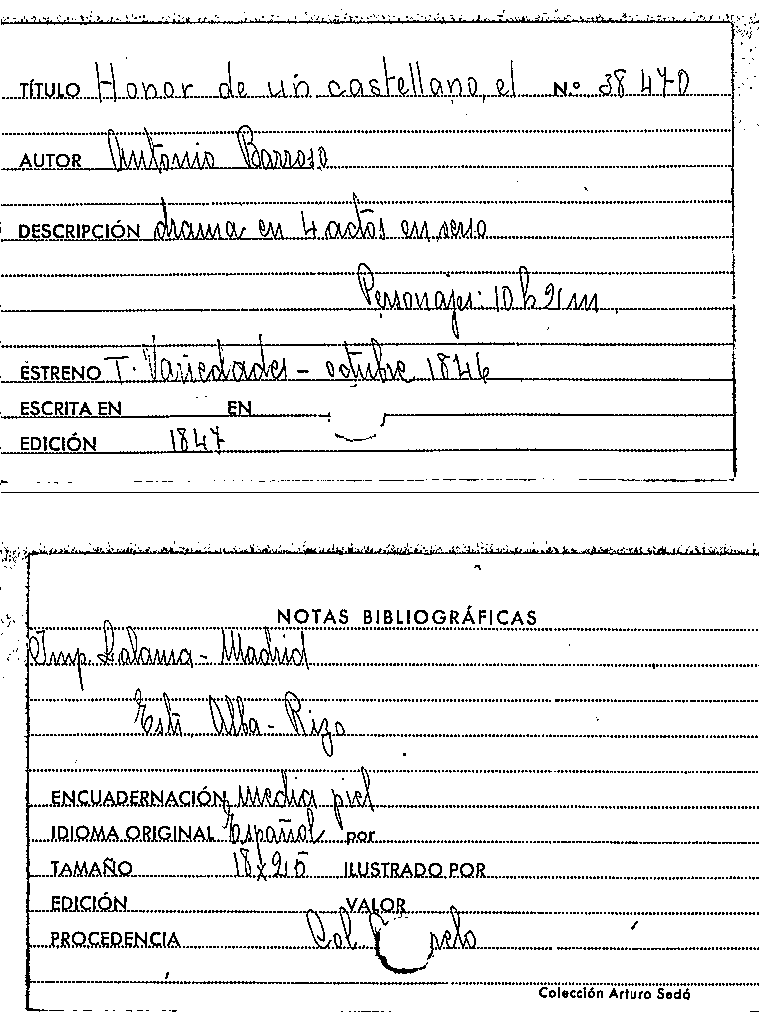 TÍTULO Honor de un castellano, el N.º 38470
AUTOR Antonio Barroso
DESCRIPCIÓN drama en 4 actos en verso
Personajes: 10 h 2 m
ESTRENO T. Variedades - octubre 1846
ESCRITA EN EN
EDICIÓN 1847
NOTAS BIBLIOGRÁFICAS
Imp. Lalama - Madrid
Alba - Rizo
ENCUADERNACIÓN media piel
IDIOMA ORIGINAL Español por
TAMAÑO 18x25 ILUSTRADO POR
EDICIÓN VALOR
PROCEDENCIA Col.
Colección Arturo Sedó